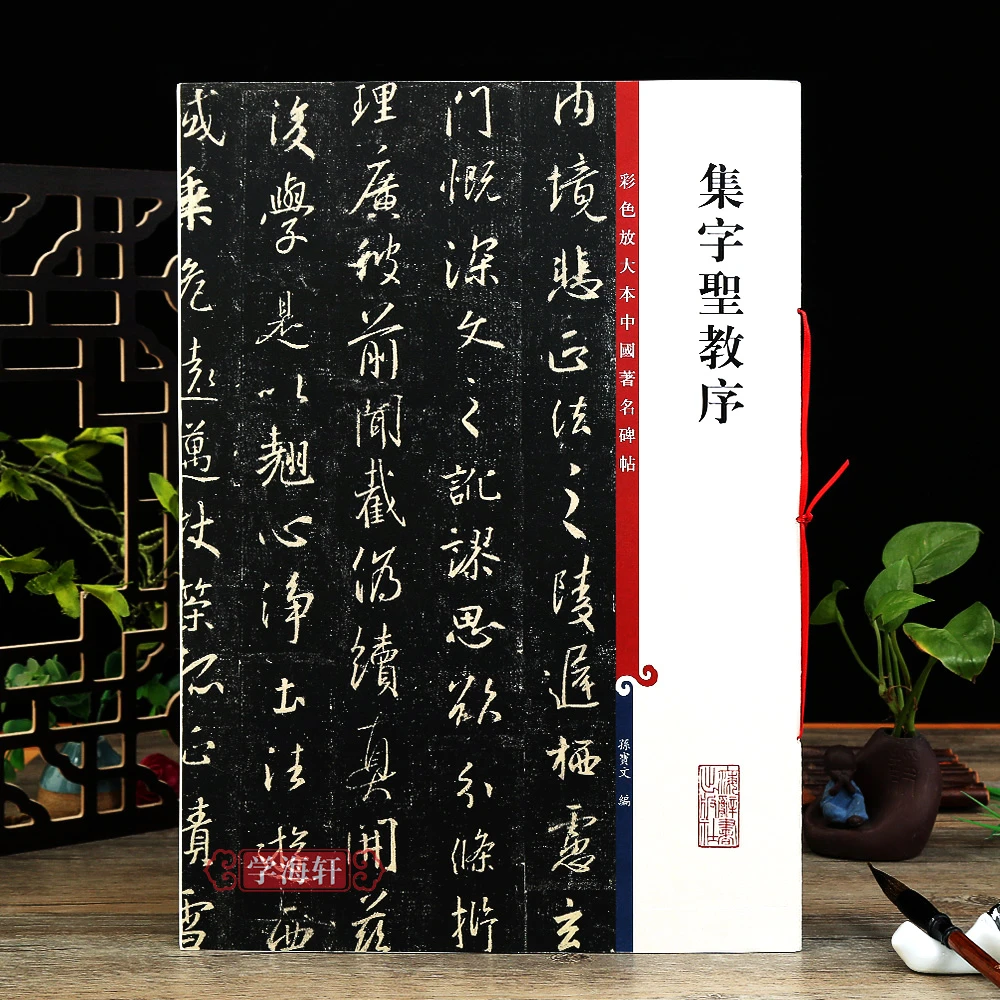 集字聖教序
彩色放大本中國著名碑帖
孫寶文 編
内境悲正法之陵遲栖慮玄
门慨深文之訛謬思欲分條析
理廣彼前聞截偽續真開茲
後學是以翹心淨土法遊西
域乘危遠邁杖策孤征積雪
上海辭書出版社
学海轩